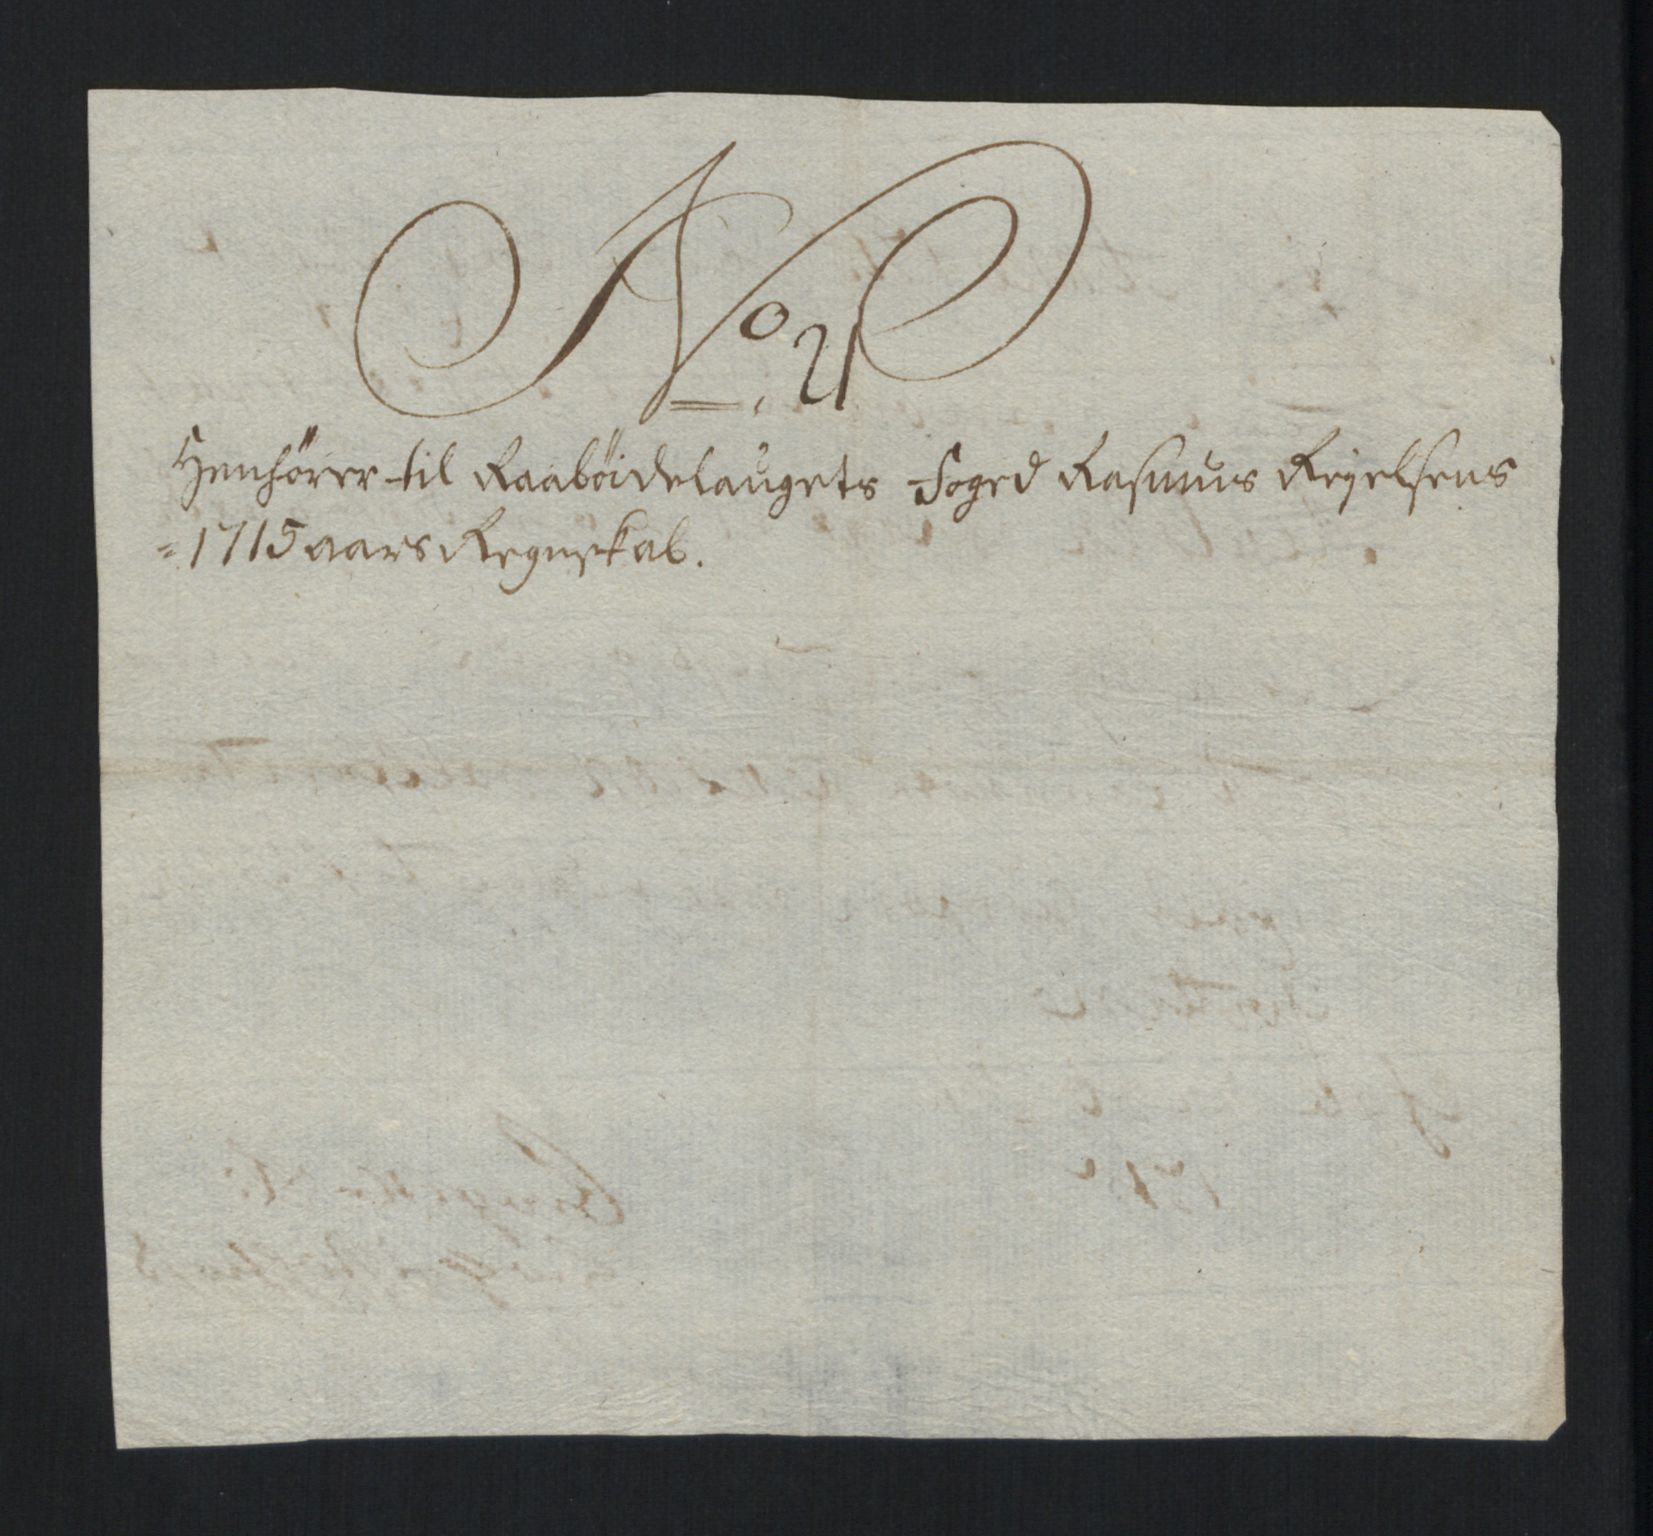 No 21
Henhörer til Raaböidelaugets Foged Rasmus Reyelsens
1715 aars Regnskab.